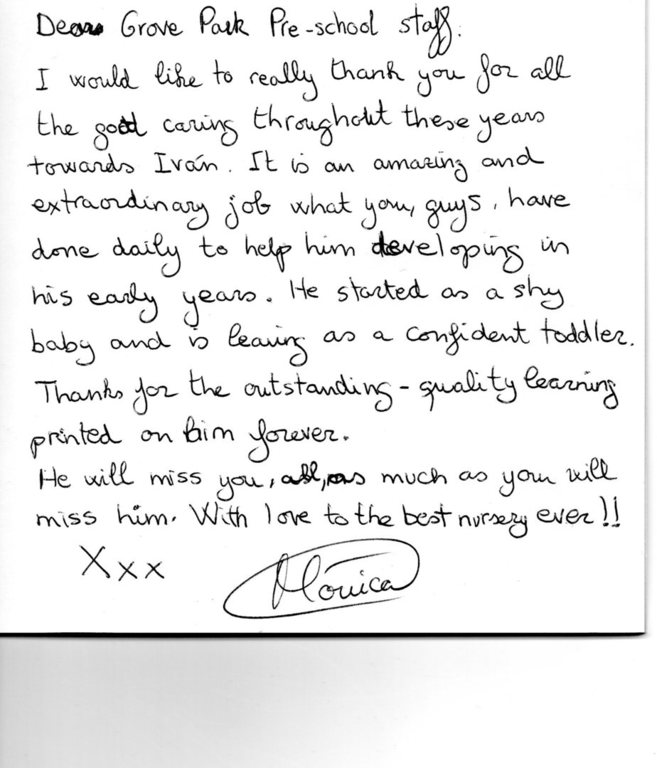 Dear Grove Park Pre-school staff.
I would like to really thank you for all
the good caring throughout these years
towards Iván. It is an amazing and
extraordinary job what you, guys, have
done daily to help him developing in
his early years. He started as a shy
baby and is leaving as a confident toddler.
Thanks for the outstanding - quality learning
printed on him forever.
He will miss you, all, as much as you will
miss him. With love to the best nursery ever!!
Xxx Mónica